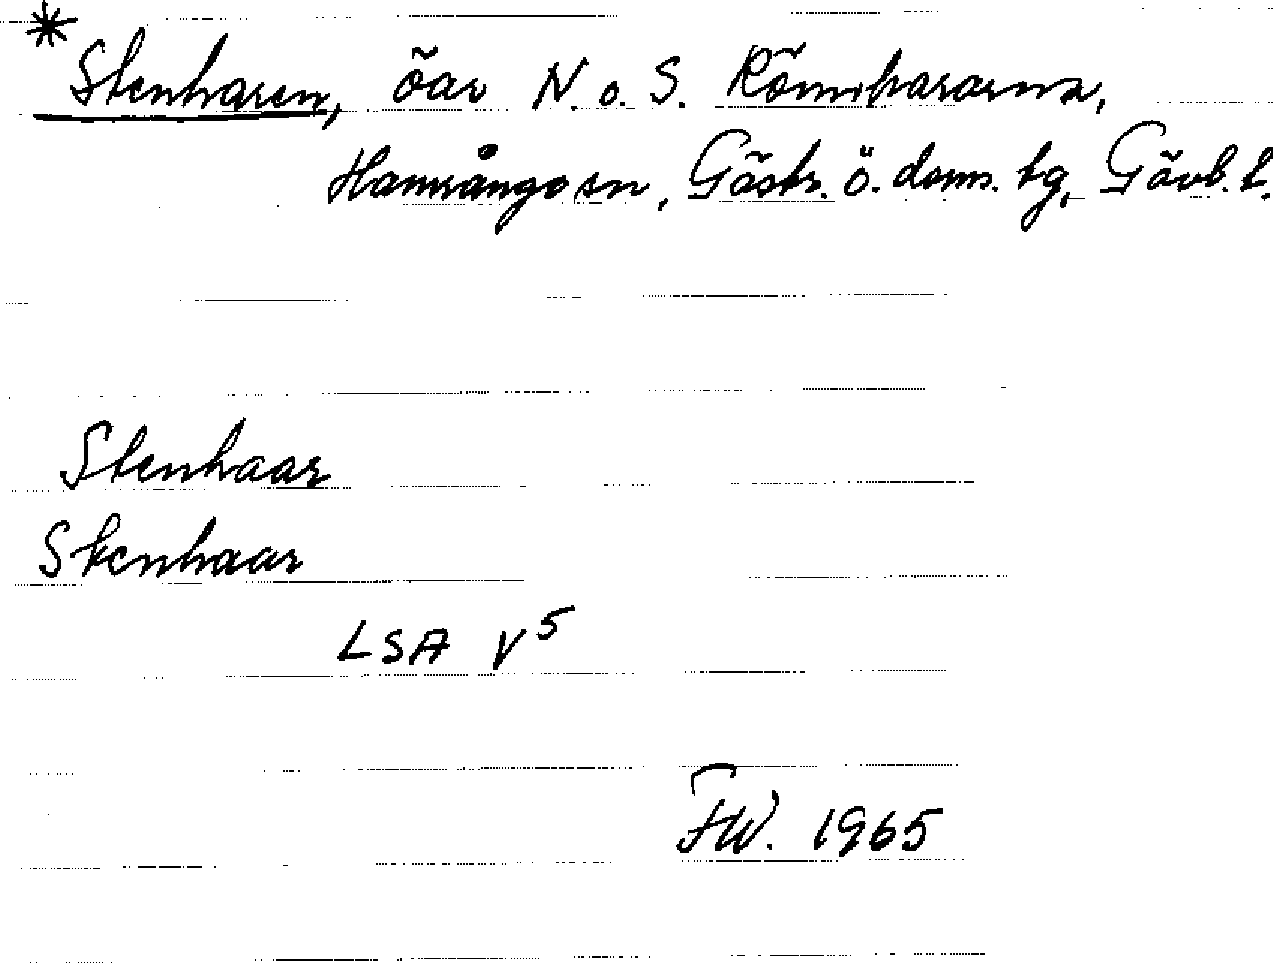 * Stenharen, öar N. o. S. Rönnhararna,
Hamrånge sn, Gästr. ö. doms. tg, Gävb. l.
Stenhaar
Stenhaar
LSA V5
FW. 1965